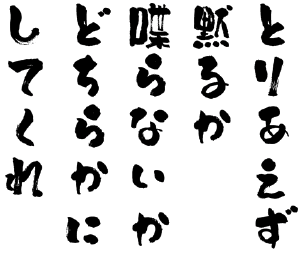 とりあえず
黙るか
喋らないか
どちらかに
してくれ